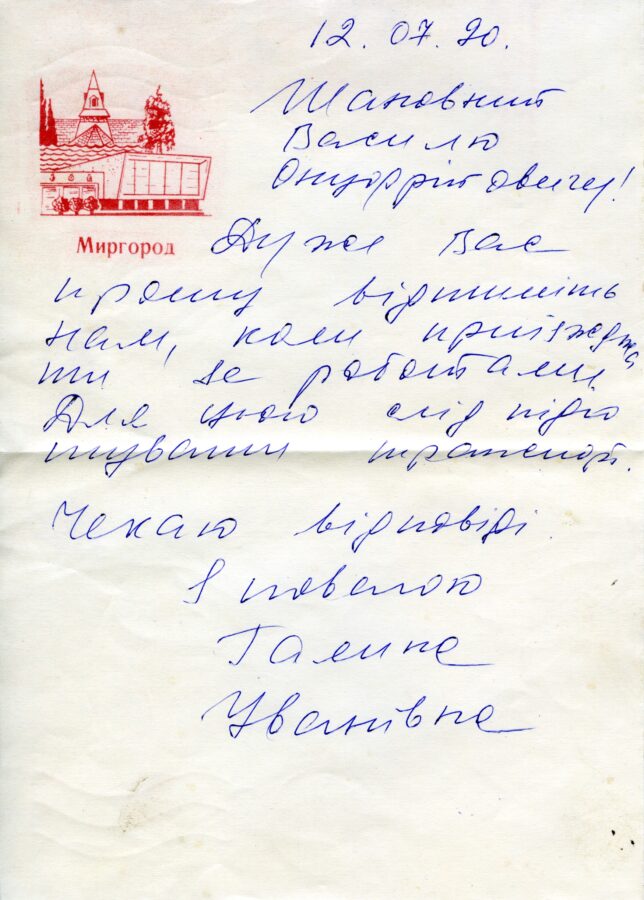 12.07.90.
Шановний
Василю
Онуфрійовичу!
Миргород
Дуже Вас
прошу відпишіть
нам, коли приїзджа
ти за роботами.
Для цього слід підго
тувати транспорт.
Чекаю відповіді.
З повагою
Галина
Іванівна